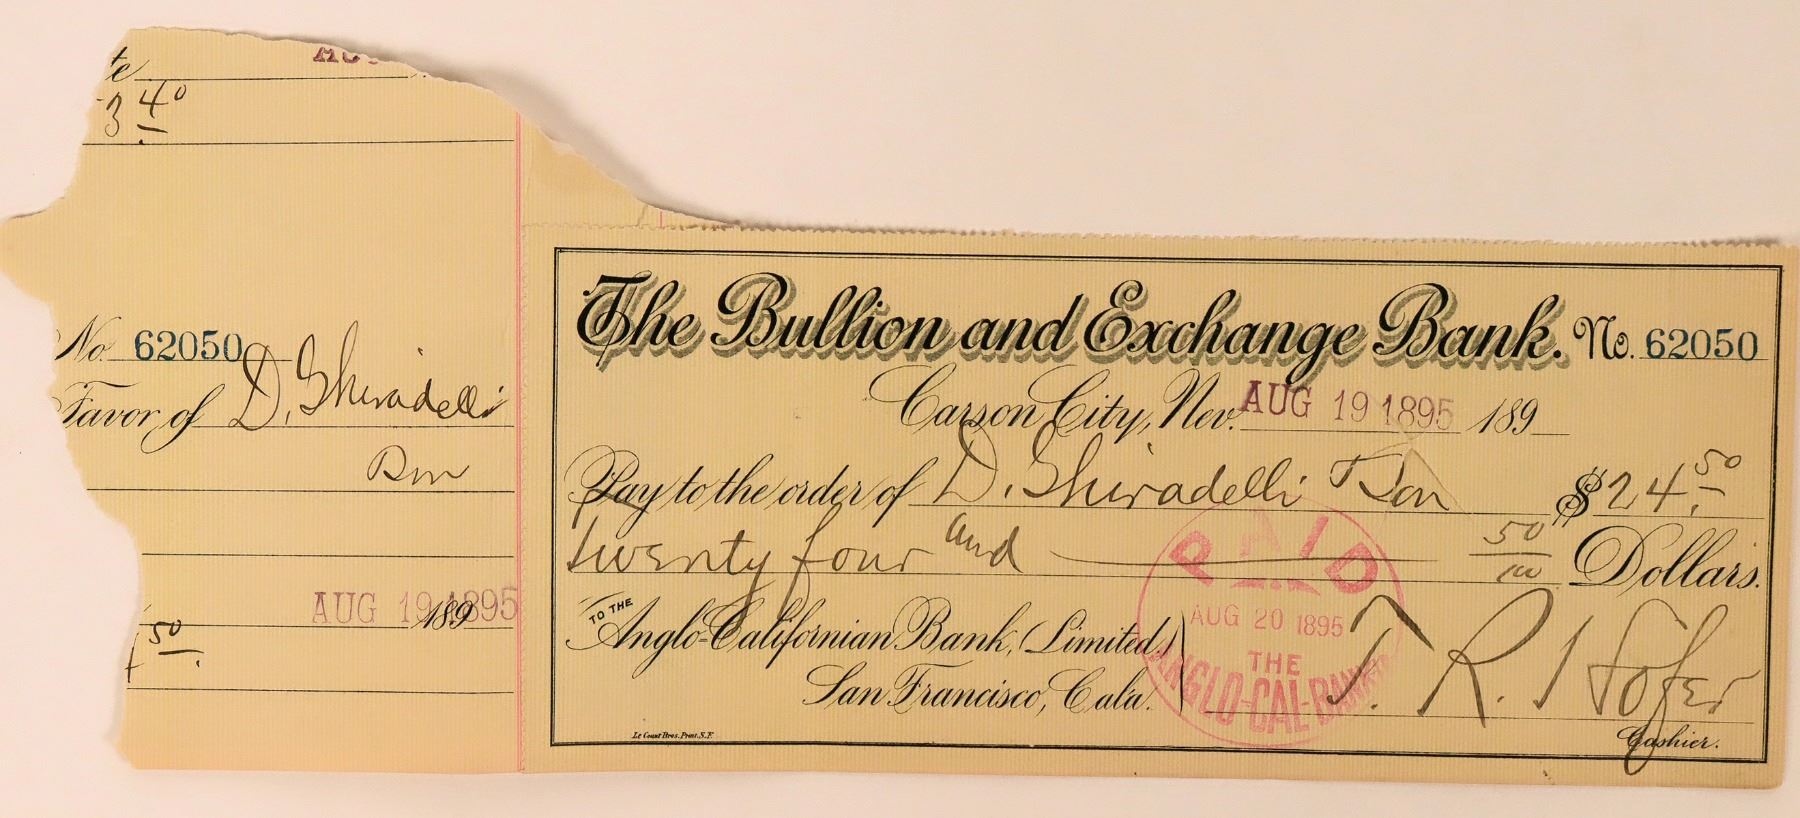 te
3 40
No. 62050
Favor of D. Ghiradelli
Son
AUG 19 1895 189
50
The Bullion and Exchange Bank. No. 62050
Carson City, Nev. AUG 19 1895 189
Pay to the order of D. Ghiradelli & Son $24.50
Twenty four and 50/100 Dollars.
TO THE
Anglo-Californian Bank, (Limited.)
San Francisco, Cala.
PAID
AUG 20 1895
THE
ANGLO-CAL-BANK
T. R. Hofer
Cashier.
Le Count Bros. Print. S.F.